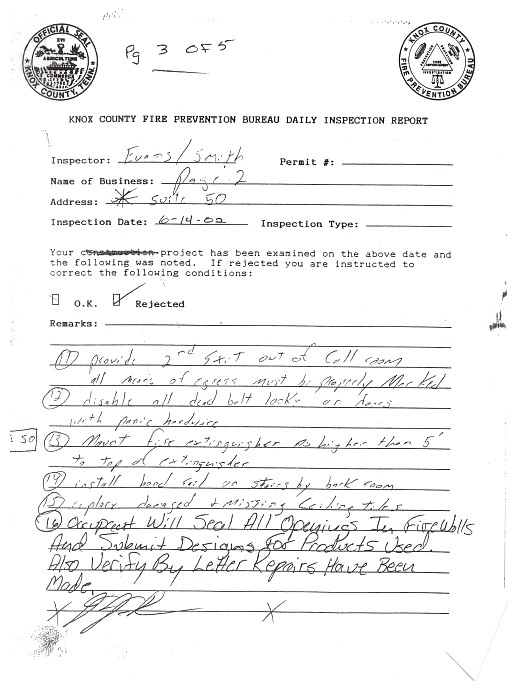 Pg 3 OF 5
OFFICIAL SEAL
XVI
AGRICULTURE
COMMERCE
KNOX COUNTY, TENN.
KNOX COUNTY
FIRE PREVENTION BUREAU
INVESTIGATION
KNOX COUNTY FIRE PREVENTION BUREAU DAILY INSPECTION REPORT
Inspector: Evans/Smith Permit #:
Name of Business: Page 2
Address: * Suite 50
Inspection Date: 6-14-02 Inspection Type:
Your construction project has been examined on the above date and
the following was noted. If rejected you are instructed to
correct the following conditions:
O.K. Rejected
Remarks:
11 provide 2nd Exit out of Call room
all means of egress must be properly Marked
12 disable all dead bolt locks on doors
with panic hardware
50
13 Mount fire extinguisher no higher than 5'
to top of extinguisher
14 install hand rail on stairs by back room
15 replace damaged & Missing Ceiling tiles
16 Occupant Will Seal All Openings In Fire Walls
And Submit Designs For Products Used.
Also Verify By Letter Repairs Have Been
Made.
X X